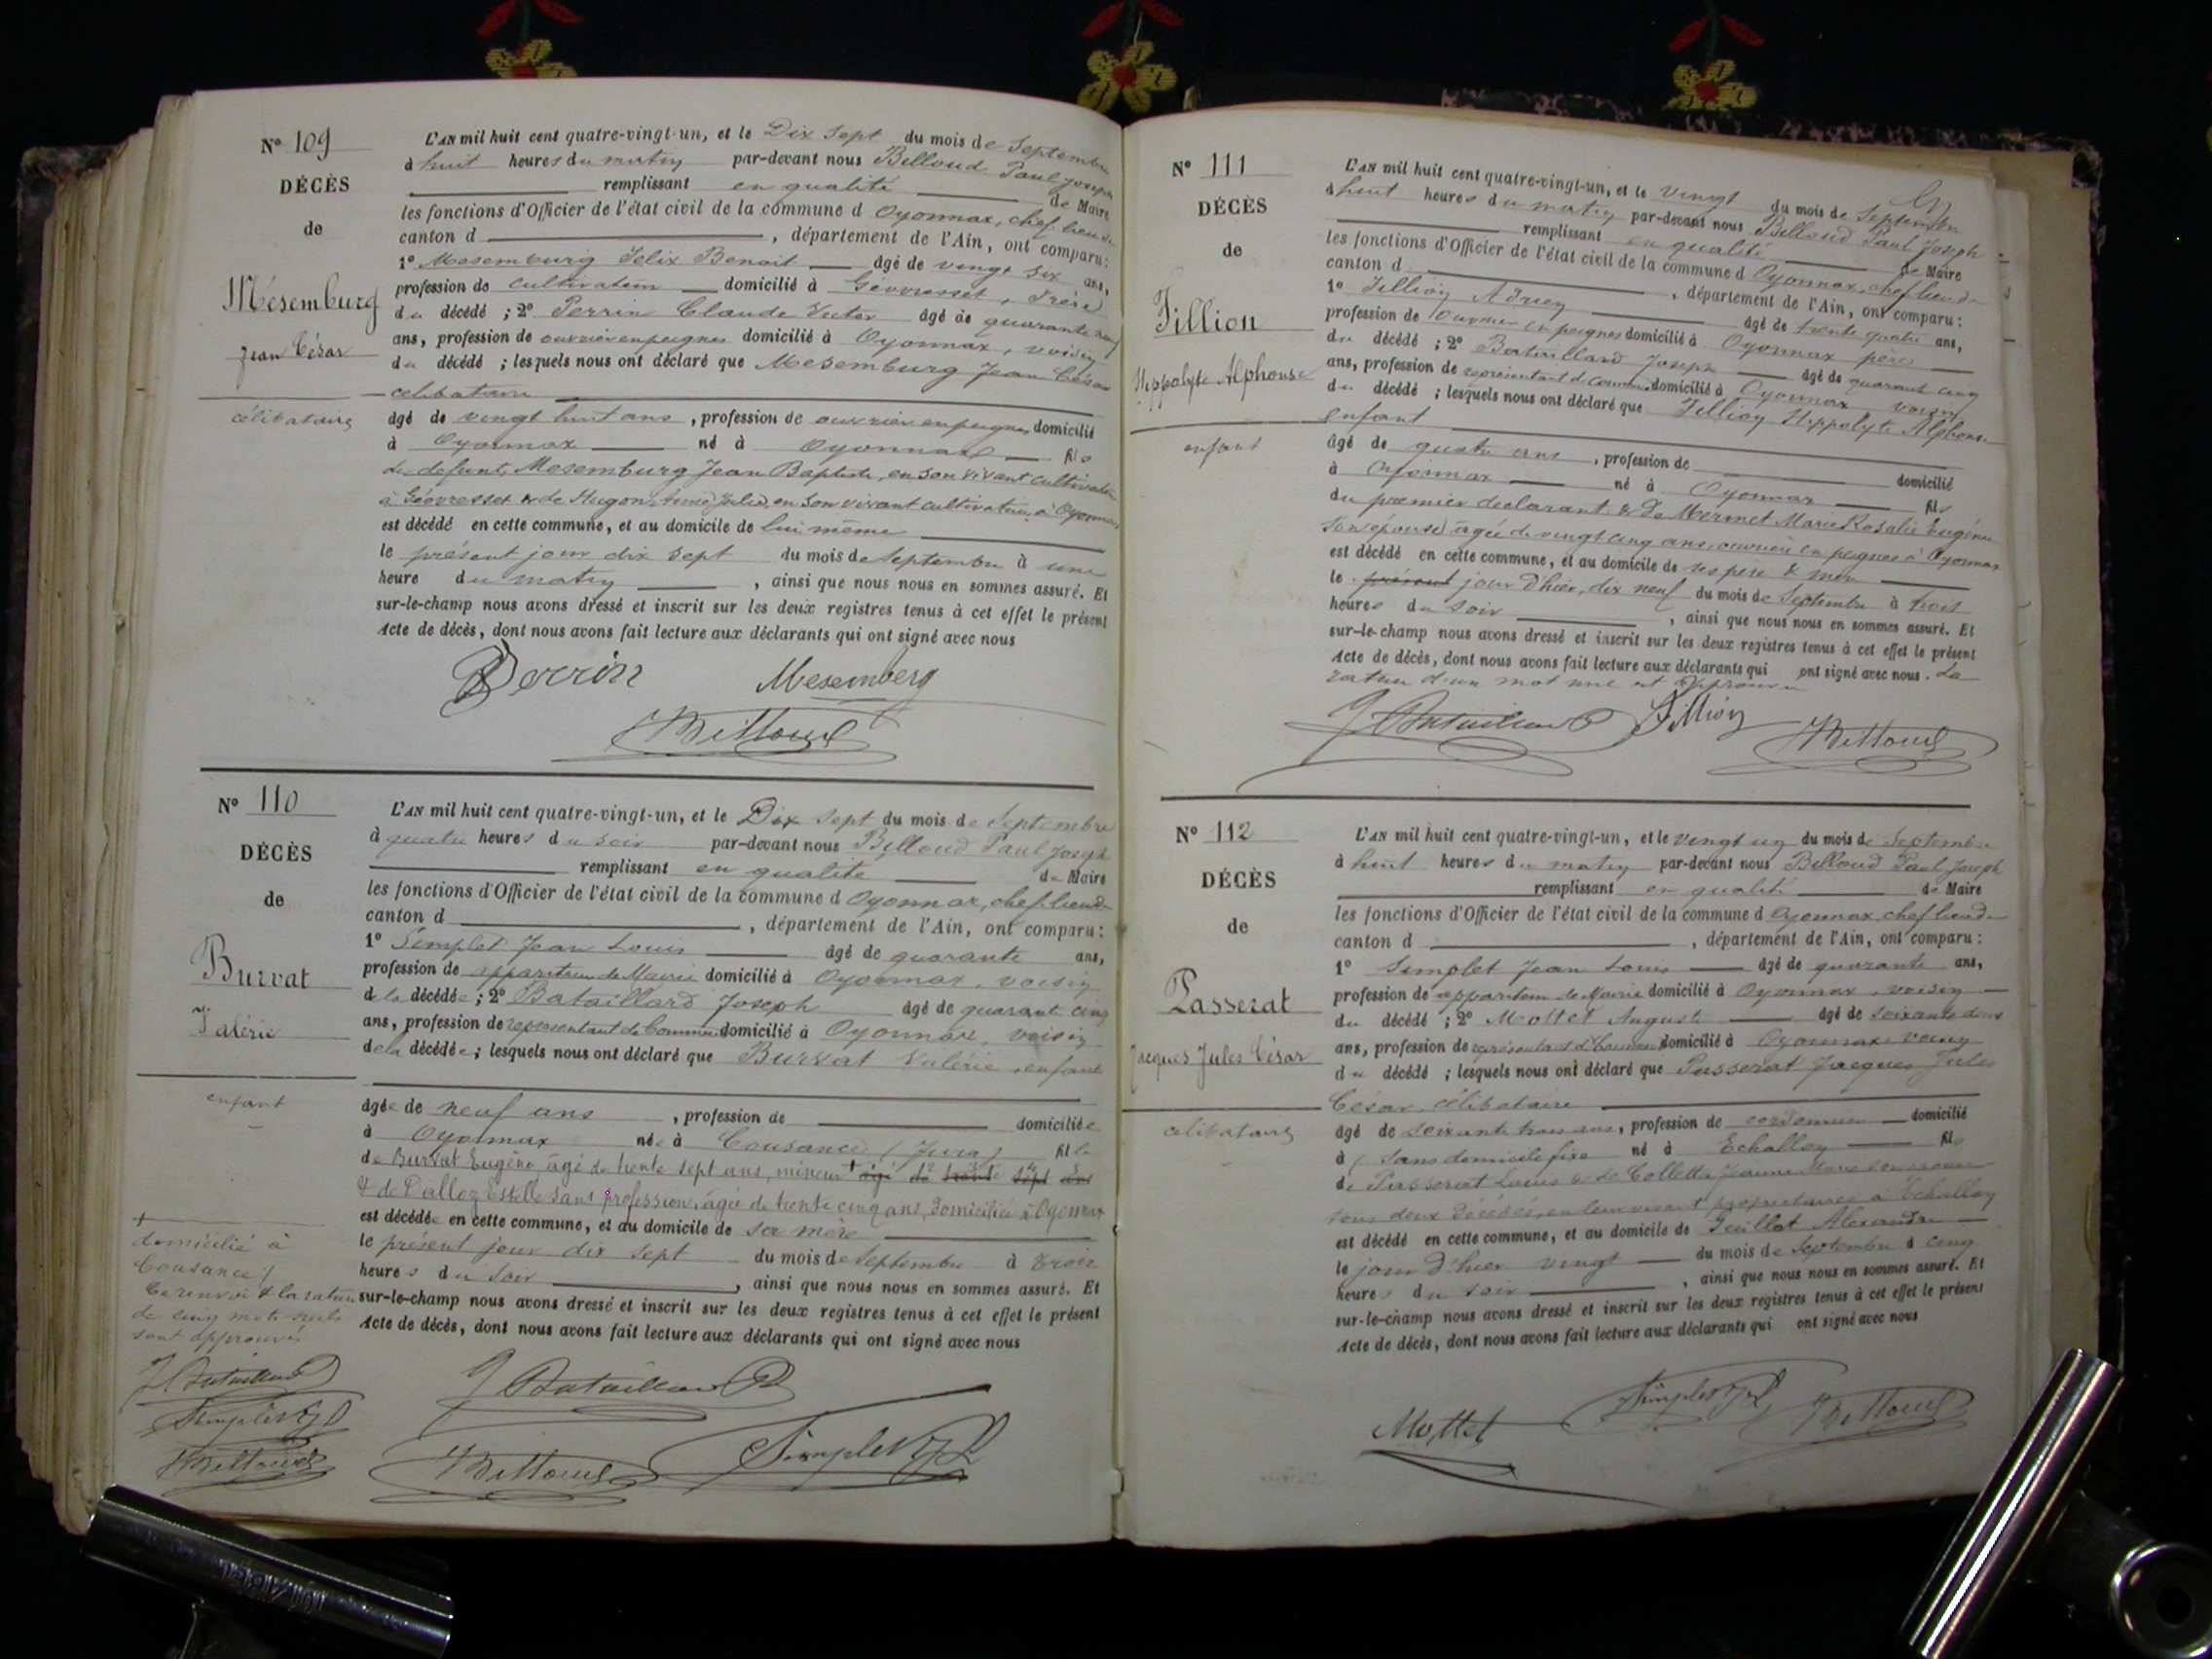 N° 109
DÉCÈS
de
Mésemburg
Jean César
célibataire
L'AN mil huit cent quatre-vingt-un, et le Dix Sept du mois de Septembre
à huit heures du matin par-devant nous Belloud Paul Joseph
remplissant en qualité de Maire
les fonctions d'Officier de l'état civil de la commune d Oyonnax, chef lieu de
canton d , département de l'Ain, ont comparu:
1° Mesemburg Felix Benoit âgé de vingt six ans,
profession de cultivateur domicilié à Géovresset, frère
du décédé ; 2° Perrin Claude Victor âgé de quarante neuf
ans, profession de ouvrier en peignes domicilié à Oyonnax, voisin
du décédé ; lesquels nous ont déclaré que Mesemburg Jean César
célibataire
âgé de vingt huit ans , profession de ouvrier en peignes domicilié
à Oyonnax né à Oyonnax fils
de defunts Mesemburg Jean Baptiste, en son vivant cultivateur
à Géovresset & de Hugon Julie, en son vivant cultivatrice à Oyonnax
est décédé en cette commune, et au domicile de lui même
le présent jour dix sept du mois de Septembre à une
heure du matin , ainsi que nous nous en sommes assuré. Et
sur-le-champ nous avons dressé et inscrit sur les deux registres tenus à cet effet le présent
Acte de décès, dont nous avons fait lecture aux déclarants qui ont signé avec nous
Perrin Mesemberg
Belloud
N° 110
DÉCÈS
de
Burvat
Valérie
enfant
L'AN mil huit cent quatre-vingt-un, et le Dix Sept du mois de Septembre
à quatre heures du soir par-devant nous Belloud Paul Joseph
remplissant en qualité de Maire
les fonctions d'Officier de l'état civil de la commune d Oyonnax, chef lieu de
canton d , département de l'Ain, ont comparu:
1° Simplet Jean Louis âgé de quarante ans,
profession de appariteur de Mairie domicilié à Oyonnax, voisin
de la décédée ; 2° Bataillard Joseph âgé de quarante cinq
ans, profession de représentant de Commerce domicilié à Oyonnax, voisin
de la décédée ; lesquels nous ont déclaré que Burvat Valérie, enfant
âgée de neuf ans , profession de domiciliée
à Oyonnax née à Cousance (Jura) fille
de Burvat Eugène âgé de trente sept ans, mineur + âgé de trente sept ans
& de Dalloz Estelle sans profession, âgée de trente cinq ans, domiciliée à Oyonnax
est décédée en cette commune, et au domicile de sa mère
le présent jour dix sept du mois de Septembre à trois
heures du soir , ainsi que nous nous en sommes assuré. Et
sur-le-champ nous avons dressé et inscrit sur les deux registres tenus à cet effet le présent
Acte de décès, dont nous avons fait lecture aux déclarants qui ont signé avec nous
+
domicilié à
Cousance/
Ce renvoi & la rature
de cinq mots nuls
sont approuvés
J Bataillard
Simplet JL
Belloud
J Bataillard
Belloud Simplet JL
N° 111
DÉCÈS
de
Fillion
Hippolyte Alphonse
enfant
L'AN mil huit cent quatre-vingt-un, et le vingt du mois de Septembre
à huit heures du matin par-devant nous Belloud Paul Joseph
remplissant en qualité de Maire
les fonctions d'Officier de l'état civil de la commune d Oyonnax, chef lieu de
canton d , département de l'Ain, ont comparu:
1° Fillion Adrien âgé de trente quatre ans,
profession de ouvrier en peignes domicilié à Oyonnax père
du décédé ; 2° Bataillard Joseph âgé de quarante cinq
ans, profession de représentant d Comm. domicilié à Oyonnax voisin
du décédé ; lesquels nous ont déclaré que Fillion Hippolyte Alphonse
enfant
âgé de quatre ans , profession de domicilié
à Oyonnax né à Oyonnax fils
du premier declarant & De Mermet Marie Rosalie Eugénie
son épouse âgée de vingt cinq ans, ouvrière en peignes à Oyonnax
est décédé en cette commune, et au domicile de ses père & mère
le présent jour d'hier, dix neuf du mois de Septembre à trois
heures du soir , ainsi que nous nous en sommes assuré. Et
sur-le-champ nous avons dressé et inscrit sur les deux registres tenus à cet effet le présent
Acte de décès, dont nous avons fait lecture aux déclarants qui ont signé avec nous. La
rature d'un mot nul est approuvée
J Bataillard Fillion Belloud
N° 112
DÉCÈS
de
Passerat
Jacques Jules César
célibataire
L'AN mil huit cent quatre-vingt-un, et le vingt un du mois de Septembre
à huit heures du matin par-devant nous Belloud Paul Joseph
remplissant en qualité de Maire
les fonctions d'Officier de l'état civil de la commune d Oyonnax, chef lieu de
canton d , département de l'Ain, ont comparu:
1° Simplet Jean Louis âgé de quarante ans,
profession de appariteur de Mairie domicilié à Oyonnax, voisin
du décédé ; 2° Mottet Auguste âgé de soixante deux
ans, profession de représentant d Commerce domicilié à Oyonnax voisin
du décédé ; lesquels nous ont déclaré que Passerat Jacques Jules
César, célibataire
âgé de soixante trois ans, profession de cordonnier domicilié
à (sans domicile fixe né à Echallon fils
de Passerat Louis & de Colletta Jeanne
tous deux décédés, en leur vivant propriétaires à Echallon
est décédé en cette commune, et au domicile de Juillot Alexandre
le jour d'hier vingt du mois de Septembre à cinq
heures du soir , ainsi que nous nous en sommes assuré. Et
sur-le-champ nous avons dressé et inscrit sur les deux registres tenus à cet effet le présent
Acte de décès, dont nous avons fait lecture aux déclarants qui ont signé avec nous
Mottet Simplet JL Belloud